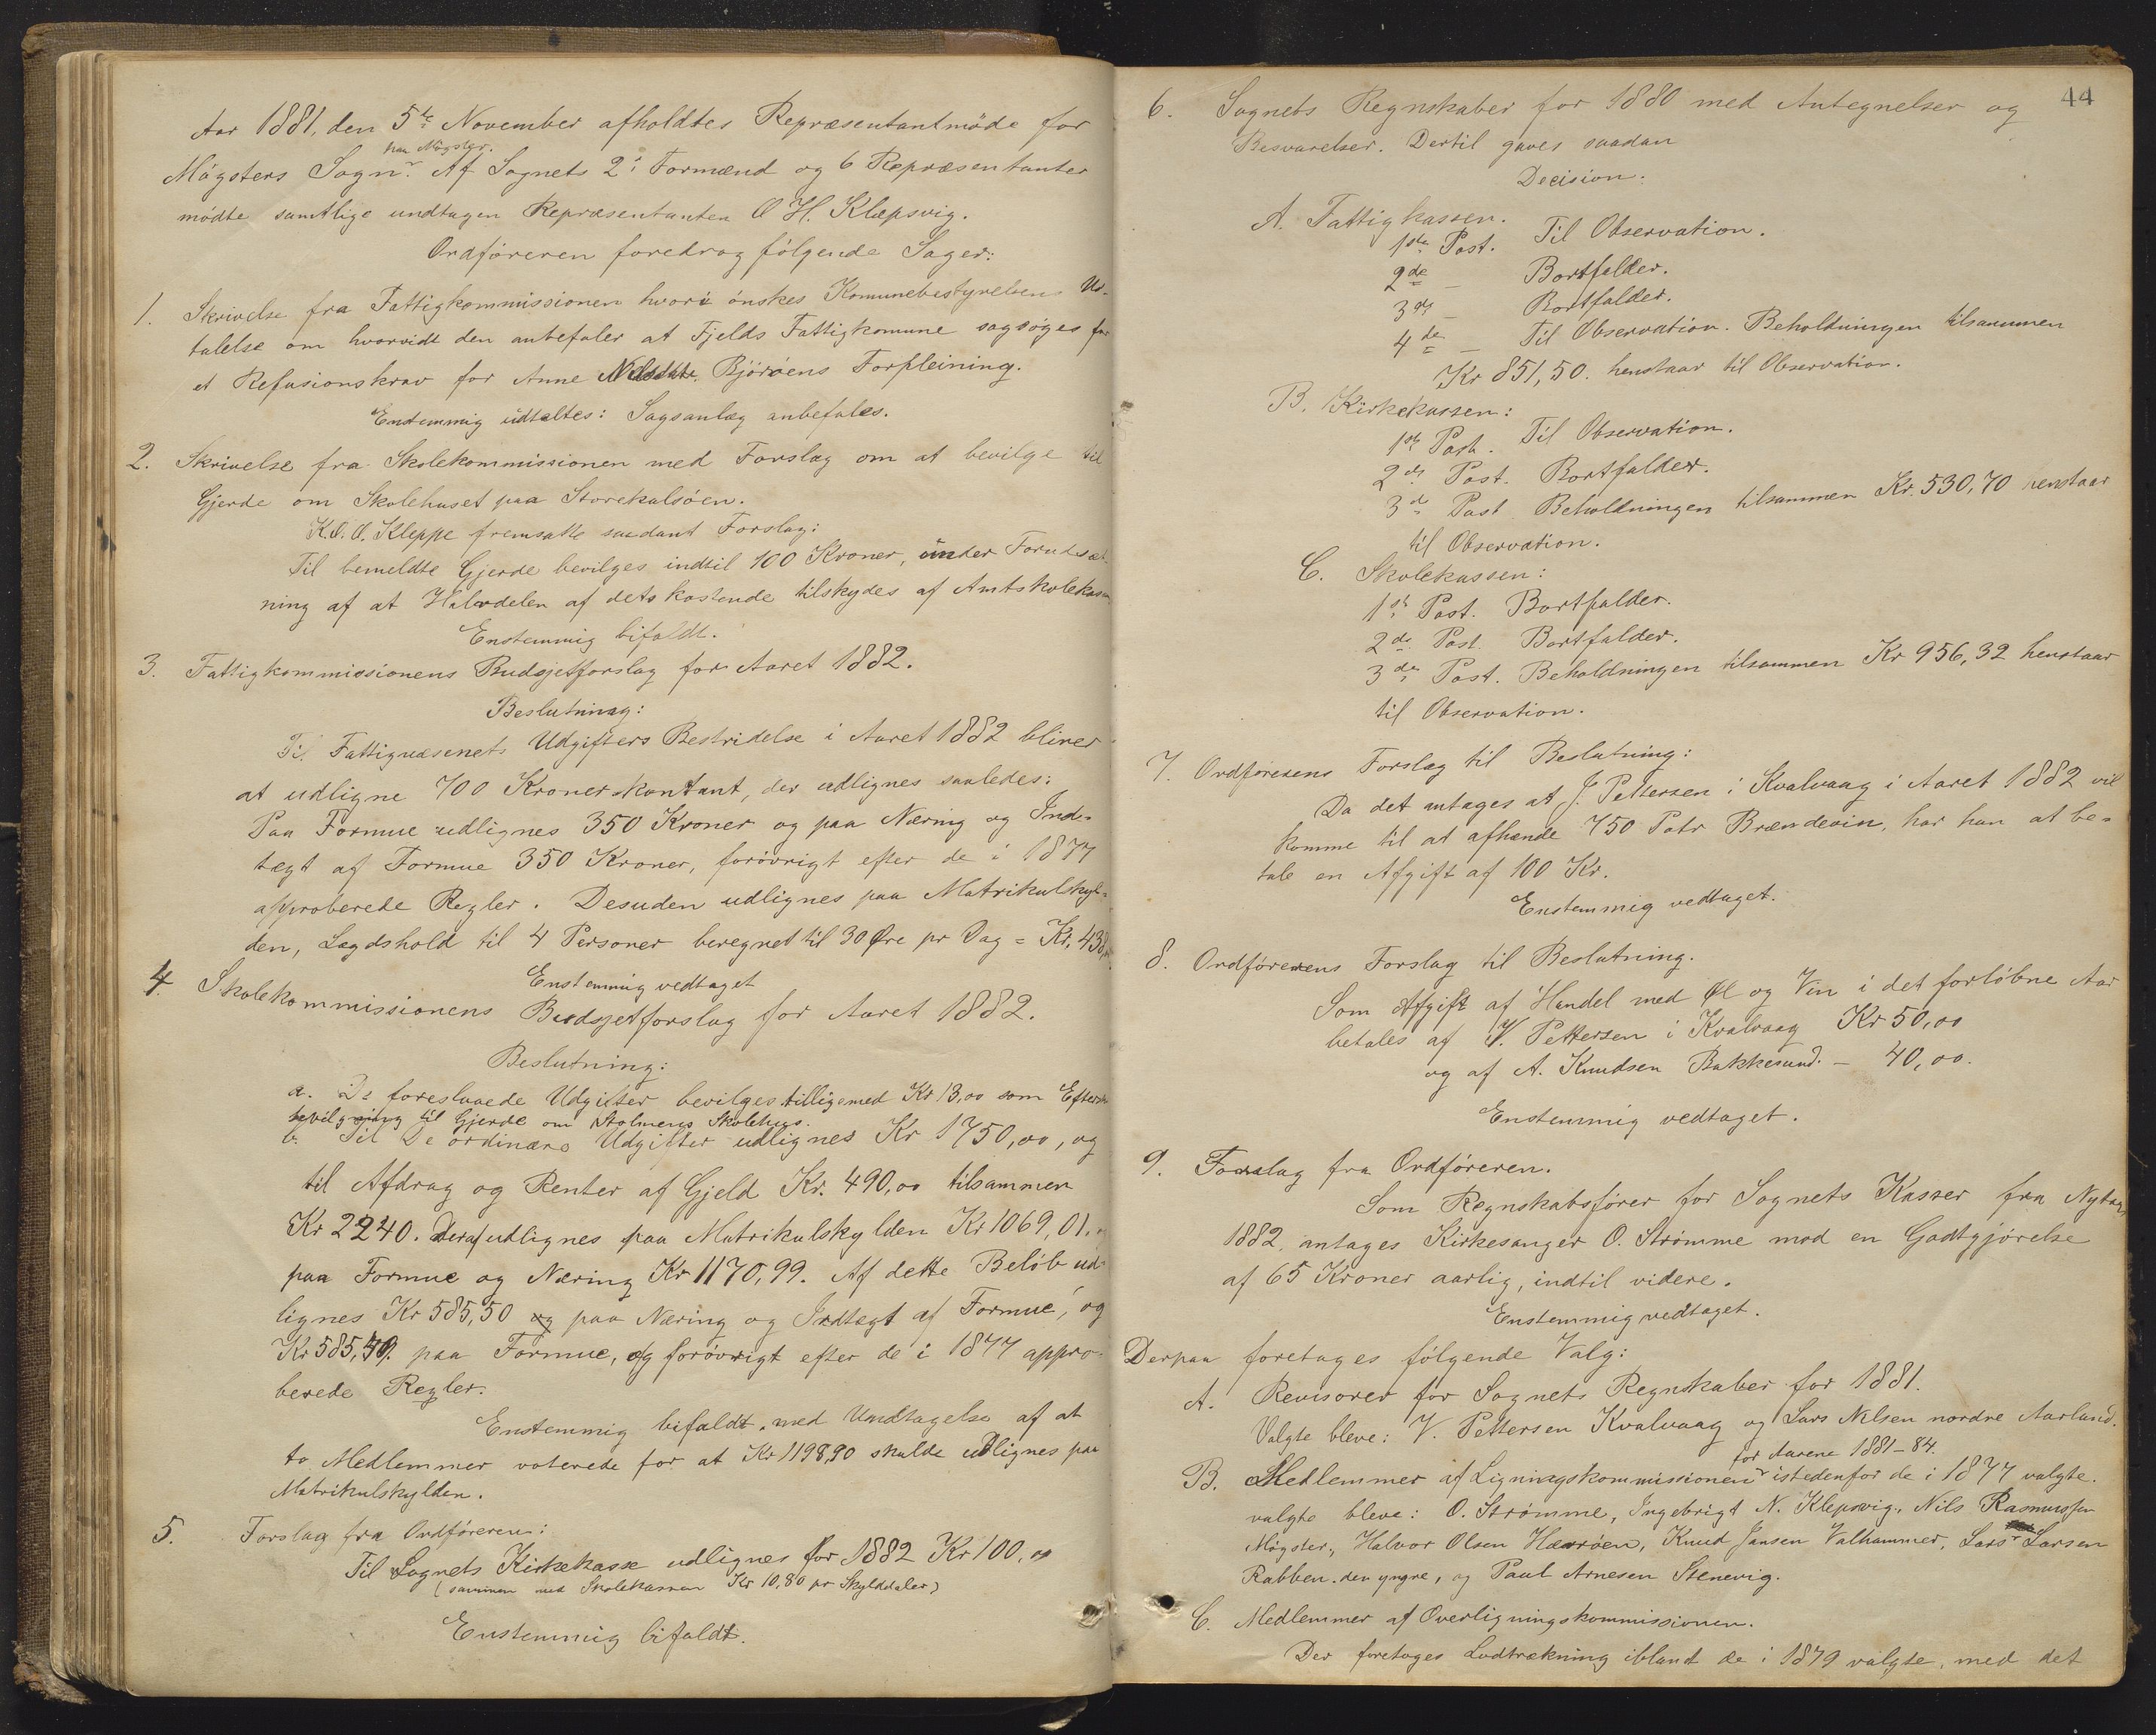 Aar 1881, den 5te November afholdtes Repræsentantmöde for
paa Mögster.
Mögsters Sogn. Af Sognets 2: Formænd og 6 Repræsentanter
mödte samtlige undtagen Repræsentanten O H. Klepsvig.
Ordföreren foredrog fölgende Sager:
1. Skrivelse fra Fattigkommissionen hvori önskes Komunebestyrelsens Ud-
talelse om hvorvidt den anbefaler at Fjelds Fattigkomune sagsöges for
et Refusionskrav for Anne Nilsdatr. Björöens Forpleining.
Enstemmig udtaltes: Sagsanlæg anbefales.
2. Skrivelse fra Skolekommissionen med Forslag om at bevilge til
Gjerde om Skolehuset paa Storekalsöen.
K.O.O. Kleppe fremsatte saadant Forslag:
Til bemeldte Gjerde bevilges indtil 100 Kroner, under Forudsæt-
ning af at Halvdelen af dets kostende tilskydes af Amtskolekassen
Enstemmig bifaldt.
3. Fattigkommissionens Budsjetforslag for Aaret 1882.
Beslutning:
Til Fattigvæsenets Udgifters Bestridelse i Aaret 1882 bliver
at udligne 700 Kroner kontant, der udlignes saaledes:
Paa Formue udlignes 350 Kroner og paa Næring og Ind-
tægt af Formue 350 Kroner, forövrigt efter de i 1877
approberede Regler. Desuden udlignes paa Matrikulskyl-
den, Lægdshold til 4 Personer beregnet til 30 Øre pr Dag = Kr. 438,
Enstemmig vedtaget
4. Skolekommissionens Budsjetforslag for Aaret 1882.
Beslutning:
a. De foreslaaede Udgifter bevilges tilligemed Kr 13,00 som Efter-
bevilgning til Gjerde om Stolmens Skolehus.
b. Til De ordinære Udgifter udlignes Kr 1750,00, og
til Afdrag og Renter af Gjeld Kr. 490,00 tilsammen
Kr 2240. Deraf udlignes paa Matrikulskylden Kr 1069,01.
paa Formue og Næring Kr 1170,99. Af dette Belöb ud-
lignes Kr 585,50 og paa Næring og Indtægt af Formue, og
Kr 585,49. paa Formue, og forövrigt efter de i 1877 appro-
berede Regler.
Enstemmig bifaldt. med Undtagelse af at
to Medlemmer voterede for at Kr 1198,90 skulde udlignes paa
Matrikulskylden.
5. Forslag fra Ordföreren:
Til Sognets Kirkekasse udlignes for 1882 Kr 100,00
(sammen med Skolekassen Kr 10,80 pr Skylddaler)
Enstemmig bifaldt.
44
6. Sognets Regnskaber for 1880 med Antegnelser og
Besvarelser. Dertil gaves saadan
Decision:
A. Fattigkassen.
1ste Post. Til Observation.
2de — Bortfalder.
3de — Bortfalder.
4de — Til Observation. Beholdningen tilsammen
Kr 851,50. henstaar til Observation.
B. Kirkekassen:
1ste Post. Til Observation.
2de Post. Bortfalder.
3de Post Beholdningen tilsammen Kr. 530,70 henstaar
til Observation.
C. Skolekassen:
1ste Post. Bortfalder.
2de Post. Bortfalder.
3de Post. Beholdningen tilsammen Kr 956,32 henstaar
til Observation.
7. Ordförerens Forslag til Beslutning:
Da det antages at J. Pettersen i Kvalvaag i Aaret 1882 vil
komme til at afhænde 750 Potr Brændevin, har han at be-
tale en Afgift af 100 Kr.
Enstemmig vedtaget.
8. Ordförerens Forslag til Beslutning.
Som Afgift af Handel med Øl og Vin i det forlöbne Aar
betales af V. Pettersen i Kvalvaag Kr 50,00
og af A. Knudsen Bakkesund. — 40,00.
Enstemmig vedtaget.
9. Forslag fra Ordföreren.
Som Regnskabsförer for Sognets Kasser fra Nytaar
1882, antages Kirkesanger O. Strömme mod en Godtgjörelse
af 65 Kroner aarlig, indtil videre.
Enstemmig vedtaget.
Derpaa foretages fölgende Valg:
A. Revisorer for Sognets Regnskaber for 1881.
Valgte bleve: V. Pettersen Kvalvaag og Lars Nilsen nordre Aarland.
for Aarene 1881-84.
B. Medlemmer af Ligningskommissionen istedenfor de i 1877 valgte.
valgte bleve: O. Strömme, Ingebrigt N. Klepsvig, Nils Rasmussen
Mögster, Halvor Olsen Hævröen, Knud Jansen Valhammer, Lars Larsen
Rabben den yngre, og Paul Arnesen Stenevig.
C. Medlemmer af Overligningskommissionen.
Der foretoges Lodtrækning iblandt de i 1879 valgte, med det